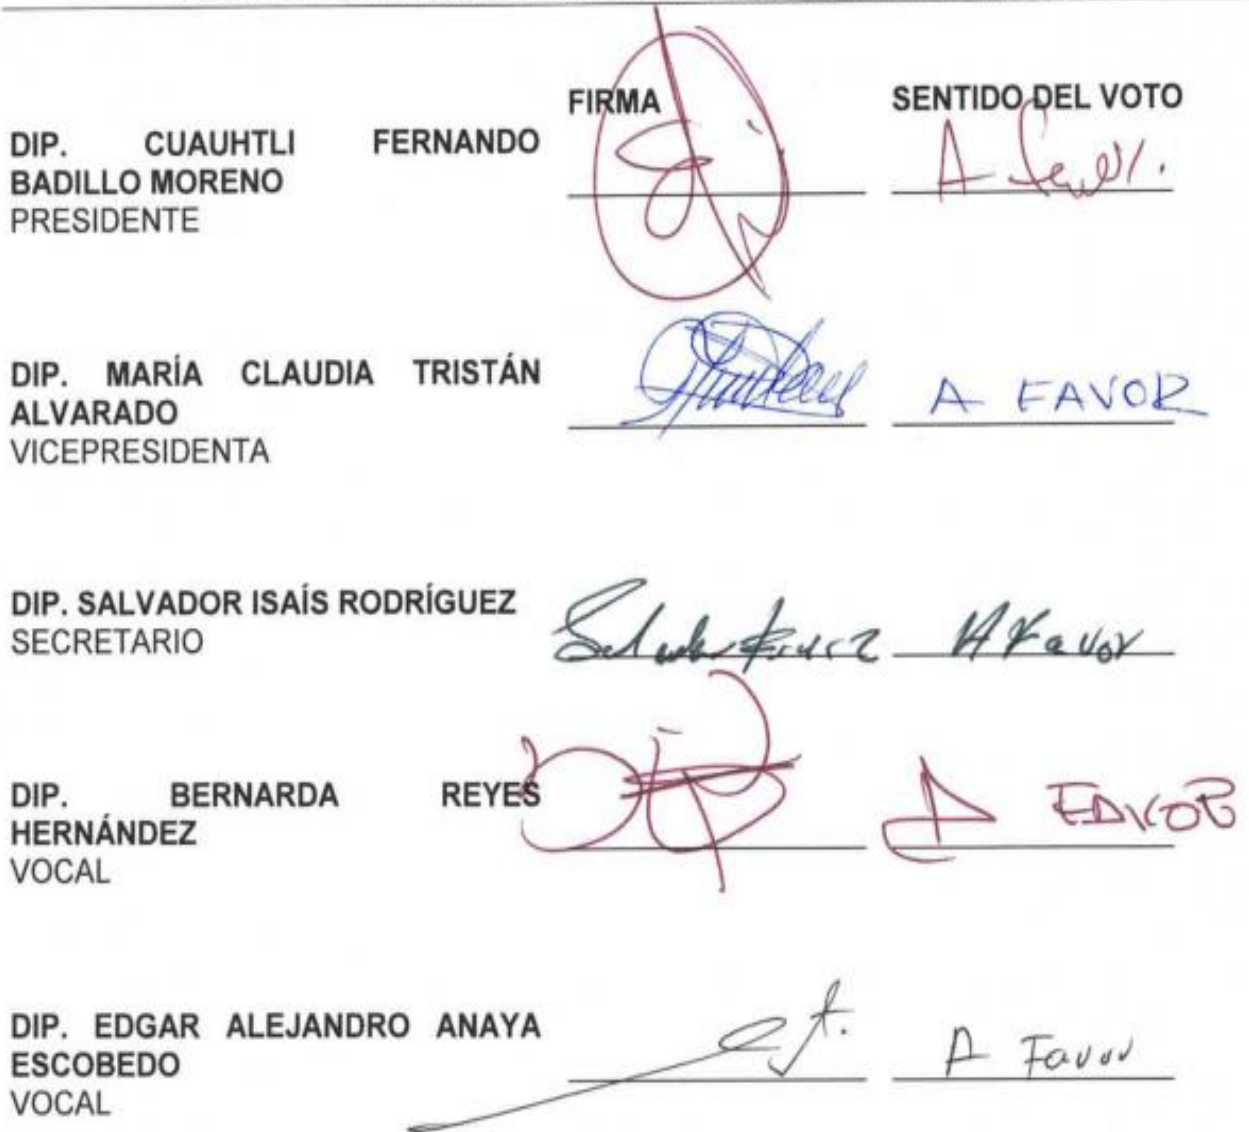 FIRMA SENTIDO DEL VOTO
DIP. CUAUHTLI FERNANDO
BADILLO MORENO
PRESIDENTE
A favor.
DIP. MARÍA CLAUDIA TRISTÁN
ALVARADO
VICEPRESIDENTA
A FAVOR
DIP. SALVADOR ISAÍS RODRÍGUEZ
SECRETARIO
A Favor
DIP. BERNARDA REYES
HERNÁNDEZ
VOCAL
A FAVOR
DIP. EDGAR ALEJANDRO ANAYA
ESCOBEDO
VOCAL
A Favor